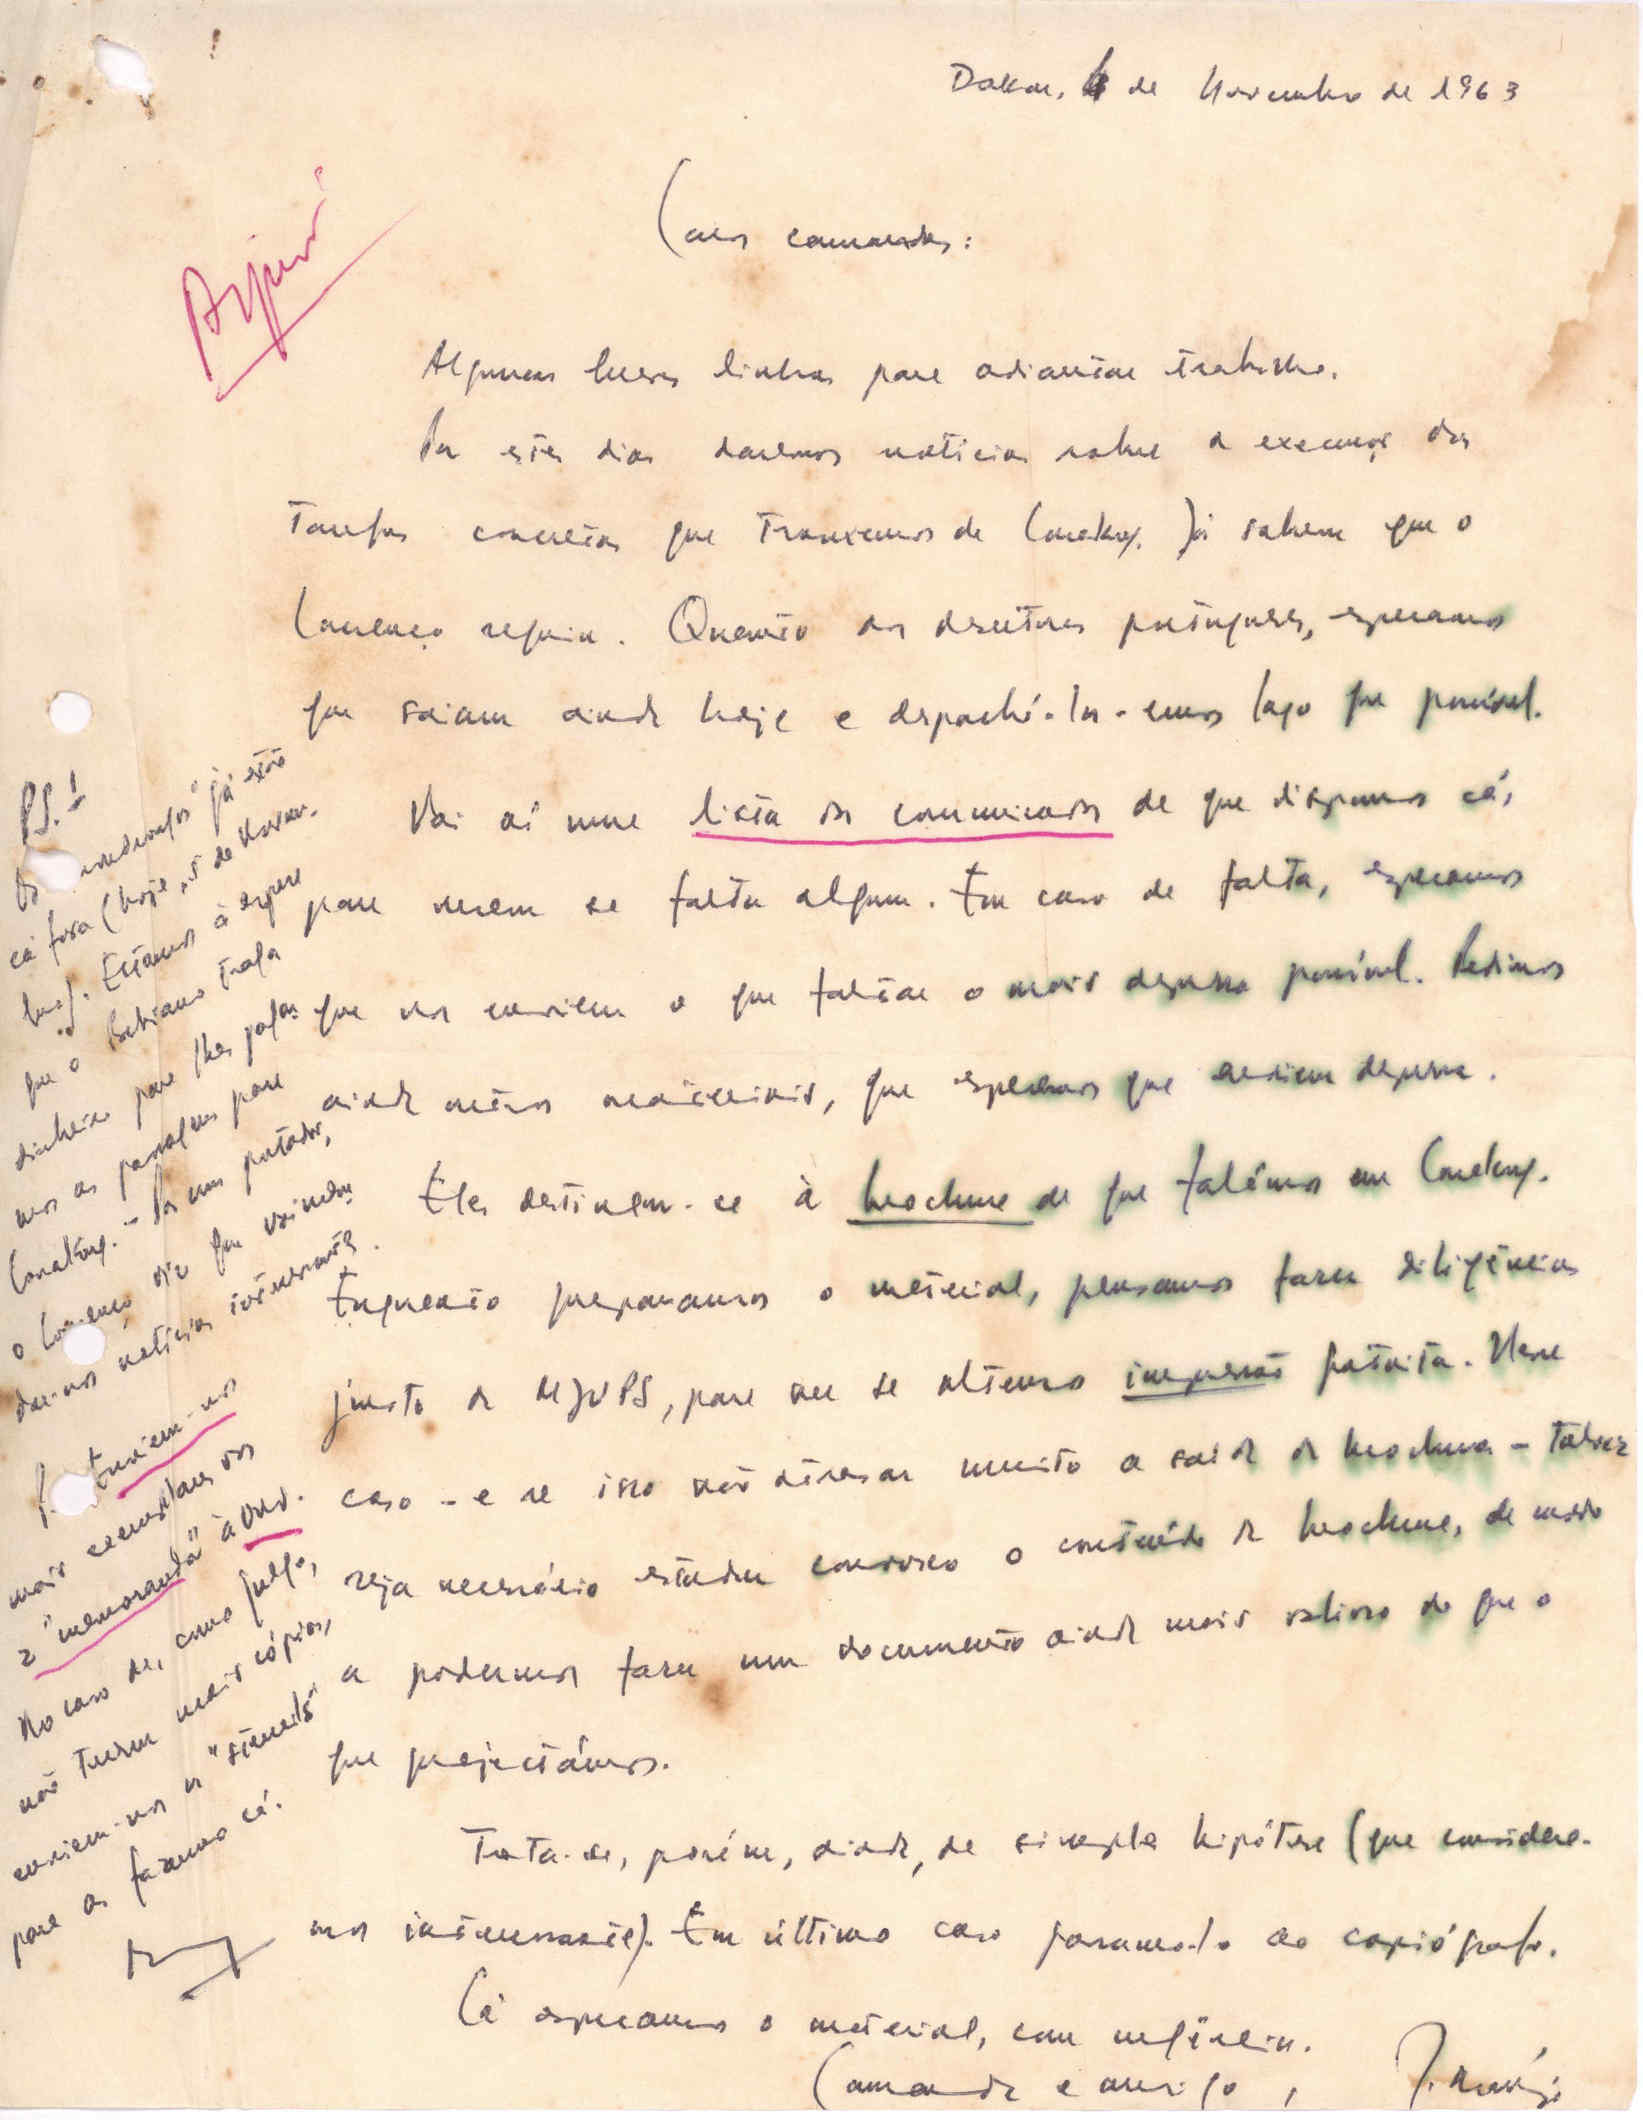 Dakar, 4 de Novembro de 1963
Caros camaradas:
Algumas breves linhas para adiantar trabalho.
Por estes dias daremos notícias sobre a execução das
tarefas concretas que trouxemos de Conakry. Já sabem que o
Lourenço seguiu. Quanto aos desertores portugueses, esperamos
que saiam ainda hoje e despachá-los-emos logo que possível.
Vai aí uma lista dos comunicados de que dispomos cá,
para verem se falta algum. Em caso de falta, esperamos
que nos enviem o que faltar o mais depressa possível. Pedimos
ainda outros materiais, que esperamos que enviem depressa.
Eles destinam-se à brochura de que falámos em Conakry.
Enquanto preparamos o material, pensamos fazer diligências
junto da MJUPS, para ver se obtemos impressão gratuita. Nesse
caso - e se isso não atrasar muito a saída da brochura - talvez
seja necessário estudar convosco o conteúdo da brochura, de modo
a podermos fazer um documento ainda mais valioso do que o
que projectámos.
Trata-se, porém, ainda, de simples hipótese (que considera-
mos interessante). Em último caso faremo-lo ao copiógrafo.
Cá esperamos o material, com urgência.
Camarada e amigo,
J. Araújo
P.S. 1
Os já estão
cá fora (hoje, 5 de Novem-
bro). Estamos à espera
que o Baticano traga
dinheiro para lhes pagar-
mos as passagens para
Conakry. - Por um portador,
o Lourenço diz que vai
dar-nos notícias interessantes.
Enviem-nos
mais exemplares dos
2 "memoranda" à ONU.
No caso de, como julgo,
não terem mais cópias,
enviem-nos os "stencils"
para os fazermos cá.